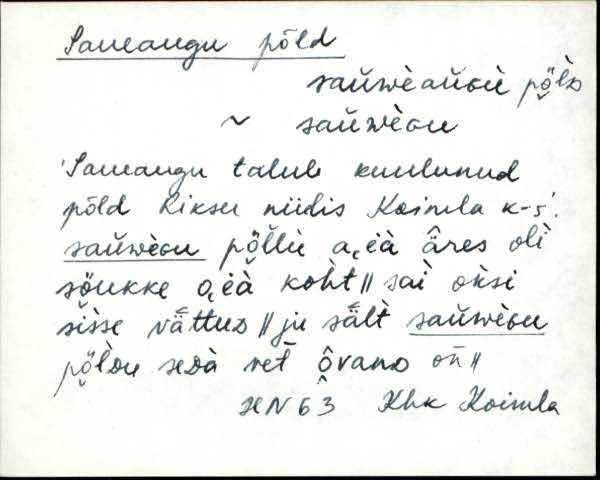 Saueaugu põld
saŭwèaŭɢù pö̬lᴅ
~ saŭwèɢu
Saueaugu talule kuulunud
põld Riksu niidis Koimla k-s.
saŭwèɢu pö̬llù a˛èà âres olì
söukke a˛èà koht ‖ saì oksi
sisse vättuᴅ ‖ ju sält saŭwèɢu
pö̬lᴅu seᴅà vet ô̬vanᴅ on ‖
HN 63 Khk Koimla